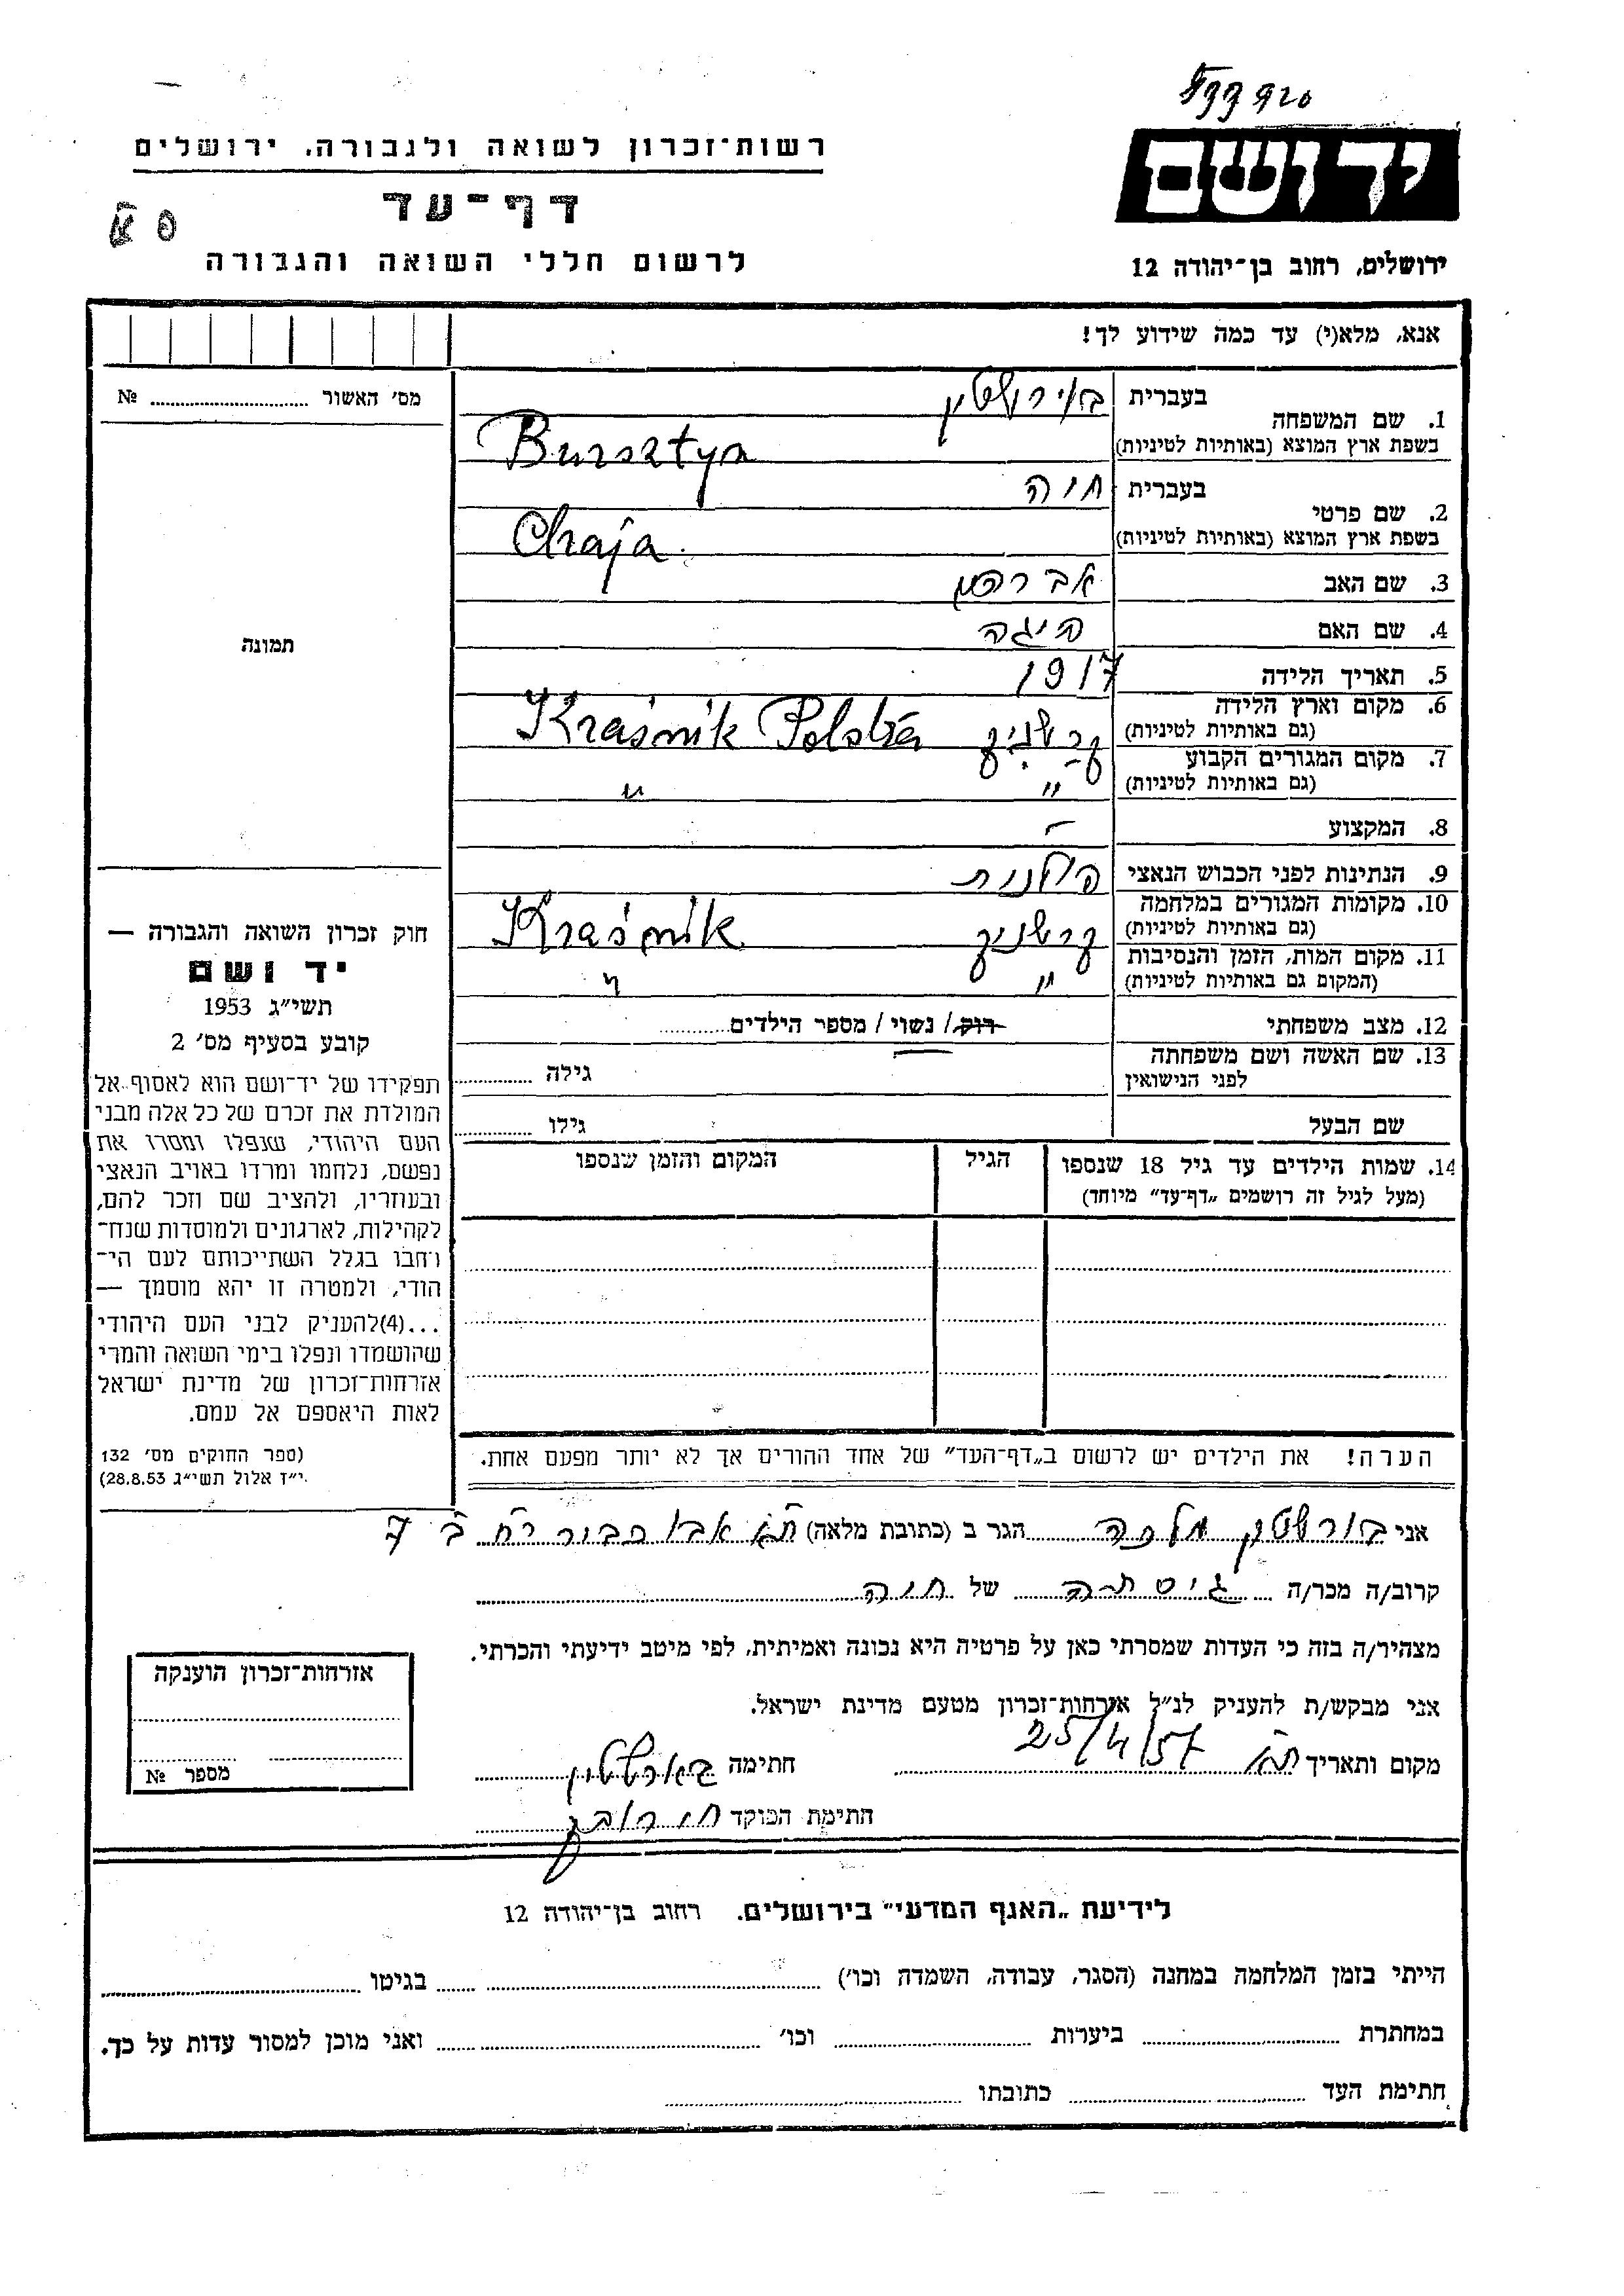 רשות־זכרון לשואה ולגבורה, ירושלים
יד ושם
דף־עד
לרשום חללי השואה והגבורה
ירושלים, רחוב בן־יהודה 12
אנא, מלא(י) עד כמה שידוע לך!
מס׳ האשור № 
תמונה
1. שם המשפחה
בעברית
בשפת ארץ המוצא (באותיות לטיניות)
Bursztyn
2. שם פרטי
בעברית חוה
בשפת ארץ המוצא (באותיות לטיניות)
Chaja
3. שם האב אברהם
4. שם האם
5. תאריך הלידה 1917
6. מקום וארץ הלידה
(גם באותיות לטיניות) קרשניק Kraśnik Polska
7. מקום המגורים הקבוע
(גם באותיות לטיניות) " "
8. המקצוע –
9. הנתינות לפני הכבוש הנאצי פולנית
10. מקומות המגורים במלחמה
(גם באותיות לטיניות) קרשניק Kraśnik
11. מקום המות, הזמן והנסיבות
(המקום גם באותיות לטיניות) " "
12. מצב משפחתי רוק/ נשוי / מספר הילדים
13. שם האשה ושם משפחתה
לפני הנישואין גילה
שם הבעל גילו
14. שמות הילדים עד גיל 18 שנספו
(מעל לגיל זה רושמים „דף־עד” מיוחד)
הגיל
המקום והזמן שנספו
חוק זכרון השואה והגבורה —
יד ושם
תשי״ג 1953
קובע בסעיף מס׳ 2
תפקידו של יד־ושם הוא לאסוף אל
המולדת את זכרם של כל אלה מבני
העם היהודי, שנפלו ומסרו את
נפשם, נלחמו ומרדו באויב הנאצי
ובעוזריו, ולהציב שם וזכר להם,
לקהילות, לארגונים ולמוסדות שנח־
רחבו בגלל השתייכותם לעם הי־
הודי, ולמטרה זו יהא מוסמך —
...(4)להעניק לבני העם היהודי
שהושמדו ונפלו בימי השואה והמרי
אזרחות־זכרון של מדינת ישראל
לאות היאספם אל עמם.
(ספר החוקים מס׳ 132
י״ז אלול תשי״ג 28.8.53)
הערה! את הילדים יש לרשום ב„דף־העד” של אחד ההורים אך לא יותר מפעם אחת.
אני בורשטין מלכה הגר ב (כתובת מלאה) ת״א
קרוב/ה מכר/ה גיסתה של חוה
מצהיר/ה בזה כי העדות שמסרתי כאן על פרטיה היא נכונה ואמיתית, לפי מיטב ידיעתי והכרתי.
אני מבקש/ת להעניק לנ״ל אזרחות־זכרון מטעם מדינת ישראל.
מקום ותאריך ת״א 25/4/57 חתימה
חתימת הפוקד
אזרחות־זכרון הוענקה
מספר №
לידיעת „האגף המדעי” בירושלים. רחוב בן־יהודה 12
הייתי בזמן המלחמה במחנה (הסגר, עבודה, השמדה וכו׳) בגיטו
במחתרת ביערות וכו׳ ואני מוכן למסור עדות על כך.
חתימת העד כתובתו